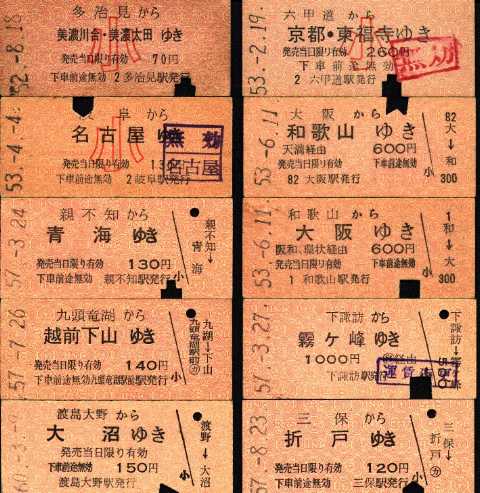 多治見から
美濃川合・美濃太田 ゆき
発売当日限り有効 70円
下車前途無効 2多治見駅発行
小
52.-8.18
六甲道から
京都・東福寺ゆき
発売当日限り有効 260円
下車前途無効
2 六甲道駅発行
小
53.-2.19.
岐阜から
名古屋ゆき
発売当日限り有効
下車前途無効 2岐阜駅発行
小
無効
名古屋
53.-4.-4.
大阪から
和歌山 ゆき
天満経由 600円
発売当日限り有効 下車前途無効
82 大阪駅発行
小
82
大→和
300
53.-6.11
親不知から
青海 ゆき
発売当日限り有効 130円
下車前途無効 親不知駅発行
小
親不知→青海
57.-3.24
和歌山から
大阪 ゆき
阪和、環状経由 600円
発売当日限り有効 下車前途無効
1 和歌山駅発行
小
1
和→大
300
53.-6.11
九頭竜湖から
越前下山 ゆき
発売当日限り有効 140円
下車前途無効九頭竜湖駅前駅発行
小
九湖→下山
57.-7.26
下諏訪 から
霧ケ峰ゆき
1000円
下諏訪駅発行
運賃
下諏訪→霧ケ峰
57.-3.27.
渡島大野 から
大沼 ゆき
発売当日限り有効
下車前途無効 150円
渡島大野駅発行
小
渡野→大沼
三保から
折戸 ゆき
発売当日限り有効 120円
下車前途無効 三保駅発行
小
三保→折戸
57.-8.23